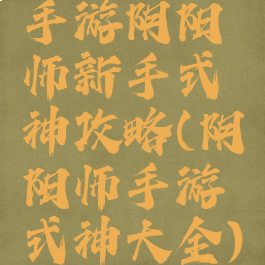 手游阴阳
师新手式
神攻略(阴
阳师手游
式神大全)